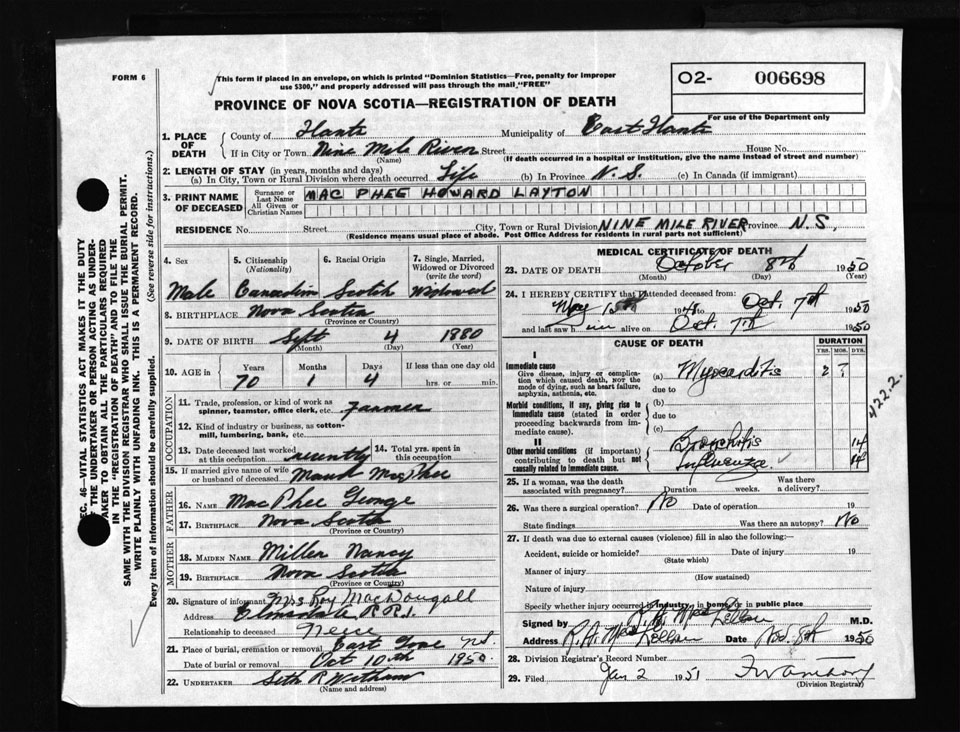 FORM 6
This form if placed in an envelope, on which is printed "Dominion Statistics—Free, penalty for improper
use $300," and properly addressed will pass through the mail "FREE"
O2- 006698
For use of the Department only
PROVINCE OF NOVA SCOTIA—REGISTRATION OF DEATH
1. PLACE OF DEATH
County of Hants Municipality of East Hants
If in City or Town Nine Mile River Street House No.
(Name) (If death occurred in a hospital or institution, give the name instead of street and number)
2. LENGTH OF STAY (in years, months and days)
(a) In City, Town or Rural Division where death occurred Life (b) In Province N.S. (c) In Canada (if immigrant)
3. PRINT NAME OF DECEASED
Surname or Last Name MAC PHEE HOWARD LAYTON
All Given or Christian Names
RESIDENCE No. Street City, Town or Rural Division NINE MILE RIVER Province N.S.
(Residence means usual place of abode. Post Office Address for residents in rural parts not sufficient)
4. Sex 5. Citizenship (Nationality) 6. Racial Origin 7. Single, Married, Widowed or Divorced (write the word)
Male Canadian Scotch Widowed
8. BIRTHPLACE Nova Scotia
(Province or Country)
9. DATE OF BIRTH Sept 4 1880
(Month) (Day) (Year)
10. AGE in Years Months Days If less than one day old
70 1 4 hrs. or min.
OCCUPATION
11. Trade, profession, or kind of work as
spinner, teamster, office clerk, etc. Farmer
12. Kind of industry or business, as cotton-
mill, lumbering, bank, etc.
13. Date deceased last worked at this occupation recently 14. Total yrs. spent in this occupation
15. If married give name of wife or husband of deceased Maud MacPhee
FATHER
16. NAME MacPhee George
17. BIRTHPLACE Nova Scotia
(Province or Country)
MOTHER
18. MAIDEN NAME Miller Nancy
19. BIRTHPLACE Nova Scotia
(Province or Country)
20. Signature of informant Mrs Roy MacDougall
Address Elmsdale R.R.1.
Relationship to deceased Neice
21. Place of burial, cremation or removal East Gore N.S.
Date of burial or removal Oct 10th 1950.
22. UNDERTAKER Seth P. Witham
(Name and address)
MEDICAL CERTIFICATE OF DEATH
23. DATE OF DEATH October 8th 1950
(Month) (Day) (Year)
24. I HEREBY CERTIFY that I attended deceased from:
May 15th 1948 to Oct. 7th 1950
and last saw him alive on Oct. 7th 1950
CAUSE OF DEATH DURATION
YRS. MOS. DYS.
I
Immediate cause
Give disease, injury or complica-
tion which caused death, NOT the
mode of dying, such as heart failure,
asphyxia, asthenia, etc.
(a) Myocarditis 2 ?
due to
Morbid conditions, if any, giving rise to
immediate cause (stated in order
proceeding backwards from im-
mediate cause).
(b)
due to
(c)
II
Other morbid conditions (if important)
contributing to death but not
causally related to immediate cause.
Bronchitis 14
Influenza 14
422.2.
25. If a woman, was the death associated with pregnancy? Duration weeks. Was there a delivery?
26. Was there a surgical operation? No Date of operation 19
State findings Was there an autopsy? No
27. If death was due to external causes (violence) fill in also the following:—
Accident, suicide or homicide? Date of injury 19
(State which)
Manner of injury
(How sustained)
Nature of injury
Specify whether injury occurred in industry, in home, or in public place
Signed by M.D.
Address Date Nov. 8th 1950
28. Division Registrar's Record Number
29. Filed Jan 2 1951
(Division Registrar)
SEC. 46—VITAL STATISTICS ACT MAKES IT THE DUTY
OF THE UNDERTAKER OR PERSON ACTING AS UNDER-
TAKER TO OBTAIN ALL THE PARTICULARS REQUIRED
IN THE "REGISTRATION OF DEATH" AND TO FILE THE
SAME WITH THE DIVISION REGISTRAR WHO SHALL ISSUE THE BURIAL PERMIT.
WRITE PLAINLY WITH UNFADING INK. THIS IS A PERMANENT RECORD.
Every item of information should be carefully supplied. (See reverse side for instructions.)